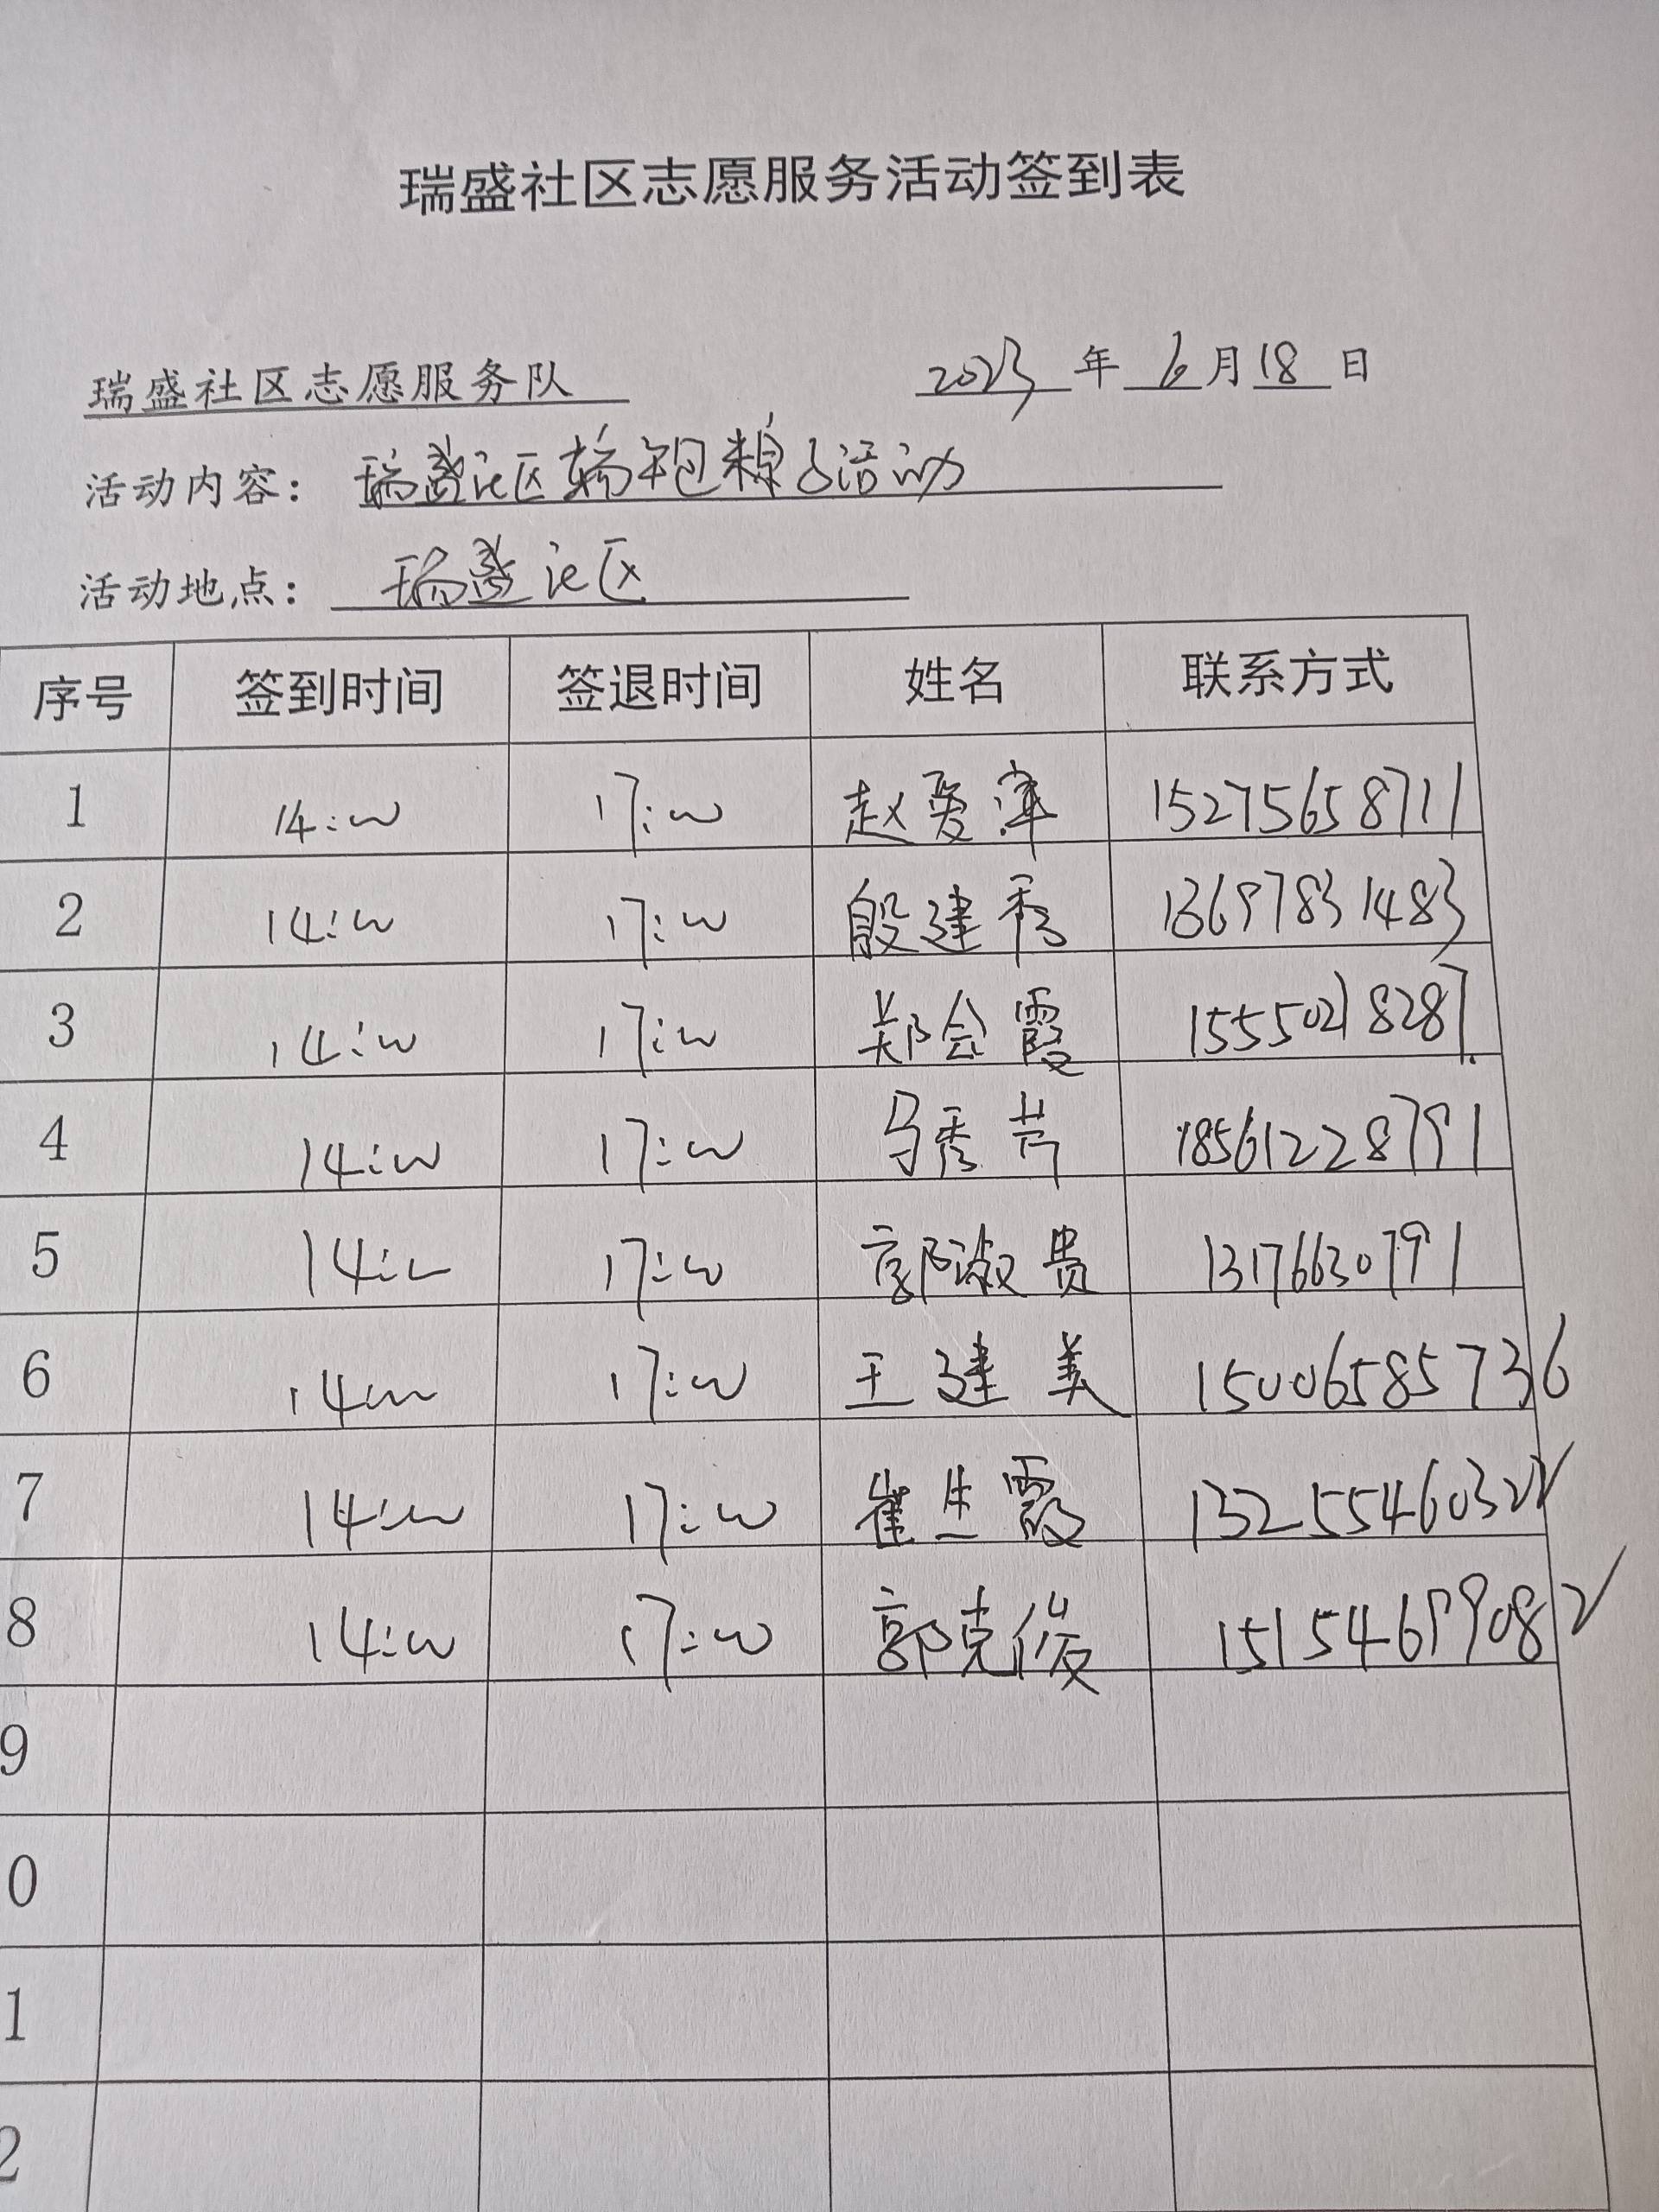 瑞盛社区志愿服务活动签到表
瑞盛社区志愿服务队 2023 年 6 月 18 日
活动内容： 瑞盛社区端午包粽子活动
活动地点： 瑞盛社区
序号 签到时间 签退时间 姓名 联系方式
1 14:00 17:00 赵爱萍 15275658711
2 14:00 17:00 殷建秀 13697831483
3 14:00 17:00 郑会霞 15550218287
4 14:00 17:00 马秀芹 18561228791
5 14:00 17:00 郭淑贵 13176630791
6 14:00 17:00 王建美 15006585736
7 14:00 17:00 崔生霞 13255460322
8 14:00 17:00 郭克俊 15154699082
9
0
1
2